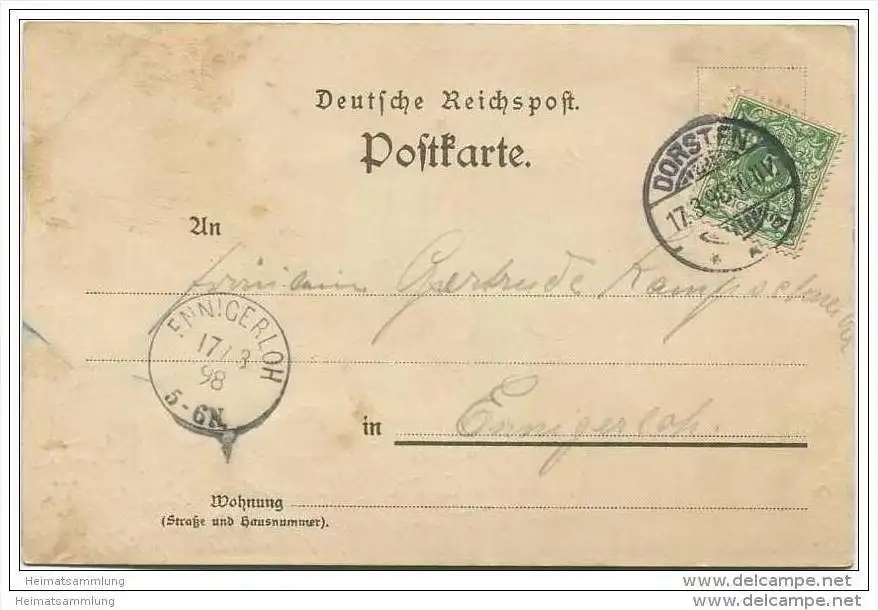 Deutsche Reichspost.
Postkarte.
DORSTEN
17.3.98.
An
Fräulein Gertrude
ENNIGERLOH
17/.3
98
5-6N.
in Ennigerloh.
Wohnung
(Straße und Hausnummer).
Heimatsammlung
Heimatsammlung
www.delcampe.net
www.delcampe.net